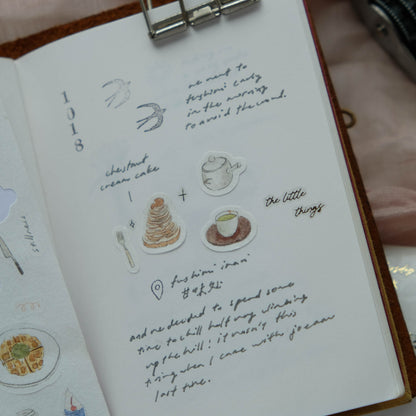 1018
we went to
fushimi early
in the morning
to avoid the crowd.
chestnut
cream cake
the little
things
fushimi inari
and we decided to spend some
time to chill half way climbing
up the hill! it wasn't this
tiring when I came with
last time.